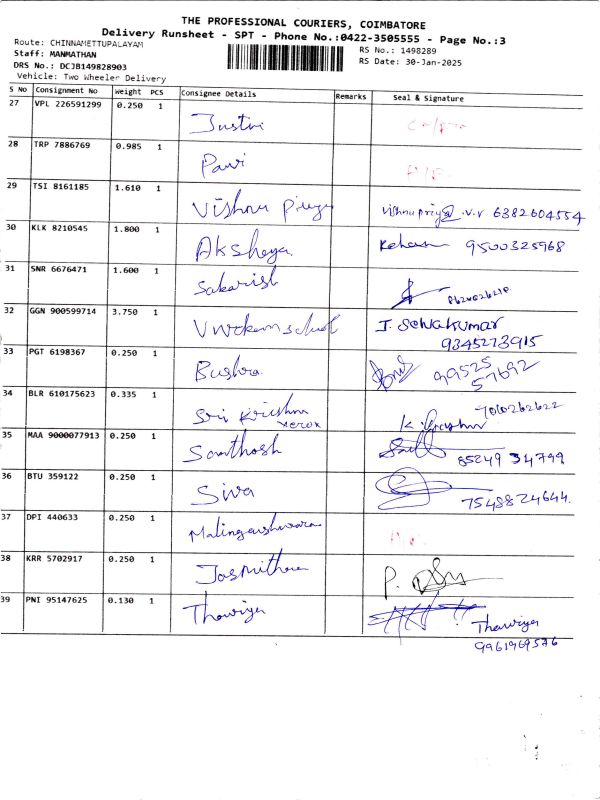 THE PROFESSIONAL COURIERS, COIMBATORE
Delivery Runsheet - SPT - Phone No.:0422-3505555 - Page No.:3
Route: CHINNAMETTUPALAYAM
RS No.: 1498289
Staff: MANMATHAN
RS Date: 30-Jan-2025
DRS No.: DCJB149828903
Vehicle: Two Wheeler Delivery
S No Consignment No Weight PCS Consignee Details Remarks Seal & Signature
27 VPL 226591299 0.250 1
28 TRP 7886769 0.985 1 Pavi
29 TSI 8161185 1.610 1 Vishnu Priya vishnupriya .v.v 6382604554
30 KLK 8210545 1.800 1 Akshaya 9500325968
31 SNR 6676471 1.600 1
32 GGN 900599714 3.750 1 J. Selvakumar
9345273915
33 PGT 6198367 0.250 1 Bushra 99525
57692
34 BLR 610175623 0.335 1 Sri Krishna
xerox
35 MAA 9000077913 0.250 1 Santhosh 85249 34799
36 BTU 359122 0.250 1 Siva 7548824644.
37 DPI 440633 0.250 1
38 KRR 5702917 0.250 1 P.
39 PNI 95147625 0.130 1 Thawiya Thawiya
9961969576